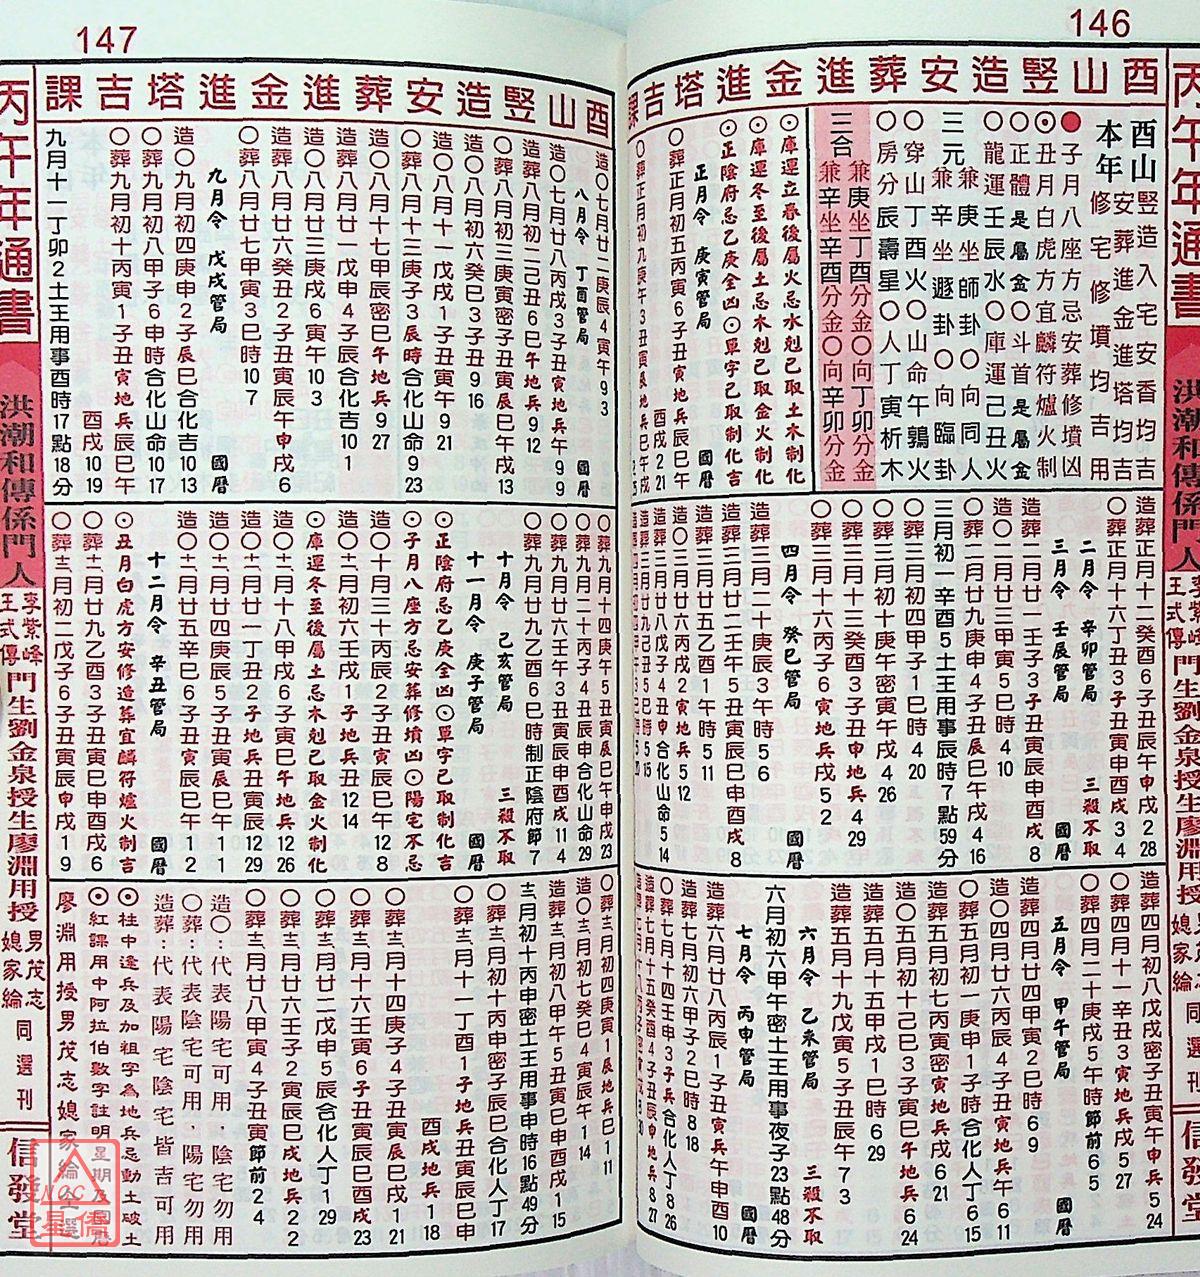 146
酉山豎造安葬進金進塔吉課
丙午年通書
洪潮和傳係門人
李紫峰
王式傳
門生劉金泉授生廖淵用授
男茂志
媳家綸
同選刊
信發堂
酉山豎造入宅安香均吉
安葬進金進塔均吉
本年修宅修墳均吉用
●子月八座方忌安葬修墳凶
⊙丑月白虎方宜麟符爐火制
○正體是屬金○斗首是屬金
○龍運壬辰水○庫運己丑火
三元兼庚坐師卦○向同人
兼辛坐遯卦○向臨卦
○穿山丁酉火○山命午鶉火
○房分辰壽星○人丁寅析木
三合兼庚坐丁酉分金○向丁卯分金
兼辛坐辛酉分金○向辛卯分金
⊙庫運立春後屬火忌水剋已取土木制化
⊙庫運冬至後屬土忌木剋已取金火制化
⊙正陰府忌乙庚全凶⊙單字已取制化吉
正月令 庚寅管局 國曆
○葬正月初五丙寅6子丑寅地兵辰巳午
酉戌2 21
造葬正月十二癸酉6子丑辰午申戌2 28
○葬正月十六丁丑3子丑寅申酉戌3 4
二月令 辛卯管局 三殺不取
三月令 壬辰管局 國曆
造葬二月廿一壬子3子丑寅辰申酉戌3 8
造○二月廿三甲寅5巳時4 10
○葬二月廿九庚申4子丑辰巳午戌4 16
三月初一辛酉5土王用事辰時7點59分
○葬三月初四甲子1巳時4 20
○葬三月初十庚午密寅午戌4 26
○葬三月十三癸酉3子丑申地兵4 29
○葬三月十六丙子6寅地兵戌5 2
四月令 癸巳管局 國曆
造葬三月二十庚辰3午時5 6
造葬三月廿二壬午5子丑申酉戌5 8
造葬三月廿五乙酉1午時5 11
造葬四月初八戊戌密子丑寅午申地兵5 24
○葬四月十一辛丑3寅地兵戌5 27
○葬四月二十庚戌5午時節前6 5
五月令 甲午管局 國曆
造葬四月廿四甲寅2巳時6 9
○葬五月初一庚申1子時合化人丁6 15
造葬五月初七丙寅密寅地兵戌6 21
造○五月初十己巳3子丑寅巳午地兵6 24
造葬五月十五甲戌1巳時6 29
造葬五月十九戊寅5子丑辰午7 3
六月令 乙未管局 三殺不取
六月初六甲午密土王用事夜子23點48分
七月令 丙申管局 國曆
造葬六月廿八丙辰1子丑寅地兵午申酉8 10
○葬七月初六甲子2巳時8 18
147
酉山豎造安葬進金進塔吉課
造○七月廿二庚辰4寅午9 3
八月令 丁酉管局 國曆
造○七月廿八丙戌3子丑寅地兵午9 9
造葬八月初二己丑6巳午地兵9 12
○葬八月初三庚寅密子丑寅辰巳午戌9 13
造○八月初六癸巳3子丑9 16
造○八月十一戊戌1寅午9 21
○葬八月十三庚子3辰時合化山命9 23
造○八月十七甲辰密巳午地兵9 27
造○八月廿一戊申4子辰合化吉10 1
造○八月廿三庚戌6寅午10 3
○葬八月廿六癸丑2子丑寅辰午申戌10 6
○葬八月廿七甲寅3巳時10 7
九月令 戊戌管局 國曆
造○九月初四庚申2子辰巳合化吉10 13
○葬九月初八甲子6申時合化山命10 17
○葬九月初十丙寅1子丑寅地兵辰巳午
酉戌10 19
九月十一丁卯2土王用事酉時17點18分
○葬九月十四庚午5丑寅辰巳午申戌10 23
○葬九月二十丙子4丑辰申合化山命10 29
○葬九月廿六壬午3丑寅辰申酉戌11 4
○葬九月廿九乙酉6巳時制正陰府節11 7
十月令 己亥管局 三殺不取
十一月令 庚子管局 國曆
⊙正陰府忌乙庚全凶⊙單字已取制化吉
⊙子月八座方忌安葬修墳凶⊙陽宅不忌
造○十月三十丙辰2子丑寅辰巳午12 8
造○十一月初六壬戌1子地兵丑12 14
造○十一月十八甲戌6子寅巳午地兵12 26
造○十一月廿一丁丑2子地兵丑寅辰12 29
⊙庫運冬至後屬土忌木剋已取金火制化
造○十一月廿四庚辰5丑寅辰巳1 1
造○十一月廿五辛巳6子丑寅辰巳午1 2
十二月令 辛丑管局 國曆
⊙丑月白虎方安修造葬宜麟符爐火制吉
○葬十一月廿九乙酉3子丑寅巳申酉戌1 6
○葬十二月初二戊子6子丑寅辰申戌1 9
○葬十二月初四庚寅1辰地兵巳1 11
造○十二月初七癸巳4寅辰午1 14
造葬十二月初八甲午5丑寅辰巳申1 15
十二月初十丙申密土王用事申時16點49分
○葬十二月初十丙申密子辰巳合化人丁1 17
○葬十二月十一丁酉1子地兵丑寅辰巳申
酉戌地兵1 18
○葬十二月十四庚子4子丑寅辰巳戌1 21
○葬十二月十六壬寅6子丑寅辰巳酉戌1 23
○葬十二月廿二戊申5辰合化人丁1 29
○葬十二月廿六壬子2寅辰巳戌地兵2 2
○葬十二月廿八甲寅4子丑寅節前2 4
造○：代表陽宅可用．陰宅勿用
○葬：代表陰宅可用．陽宅勿用
造葬：代表陽宅陰宅皆吉可用
⊙柱中逢兵及加祖字為地兵忌動土破土
⊙紅課用中阿拉伯數字註明星期及國曆
廖淵用授男茂志媳家綸仝選
丙午年通書
洪潮和傳係門人
李紫峰
王式傳
門生劉金泉授生廖淵用授
男茂志
媳家綸
同選刊
信發堂